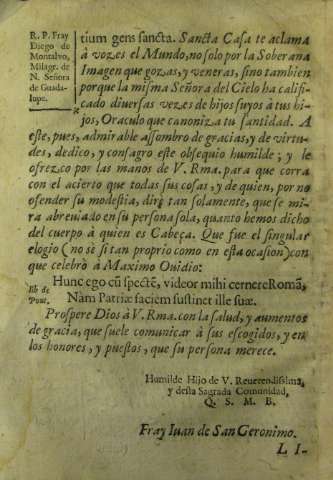 R. P. Fray
Diego de
Montalvo,
Milagr. de
N. Señora
de Guada-
lupe.
tium gens sancta. Sancta Casa te aclama
à vozes el Mundo, no solo por la Soberana
Imagen que gozas, y veneras, sino tambien
porque la misma Señora del Cielo ha califi-
cado diuersas vezes de hijos suyos à tus hi-
jos, Oraculo que canoniza tu santidad. A
este, pues, admirable assombro de gracias, y de virtu-
des, dedico, y consagro este obsequio humilde; y le
ofrezco por las manos de V. Rma. para que corra
con el acierto que todas sus cosas, y de quien, por no
ofender su modestia, dirè tan solamente, que se mi-
ra abreuiado en su persona sola, quanto hemos dicho
del cuerpo à quien es Cabeça. Que fue el singular
elogio (no sè si tan proprio como en esta ocasion) con
que celebrò à Maximo Ouidio:
lib. de
Pont.
Hunc ego cũ spectẽ, videor mihi cernere Romã,
Nam Patriæ faciem sustinet ille suæ.
Prospere Dios à V. Rma. con la salud, y aumentos
de gracia, que suele comunicar à sus escogidos, y en
los honores, y puestos, que su persona merece.
Humilde Hijo de V. Reuerendissima,
y desta Sagrada Comunidad,
Q. S. M. B.
Fray Iuan de San Geronimo.
L I-